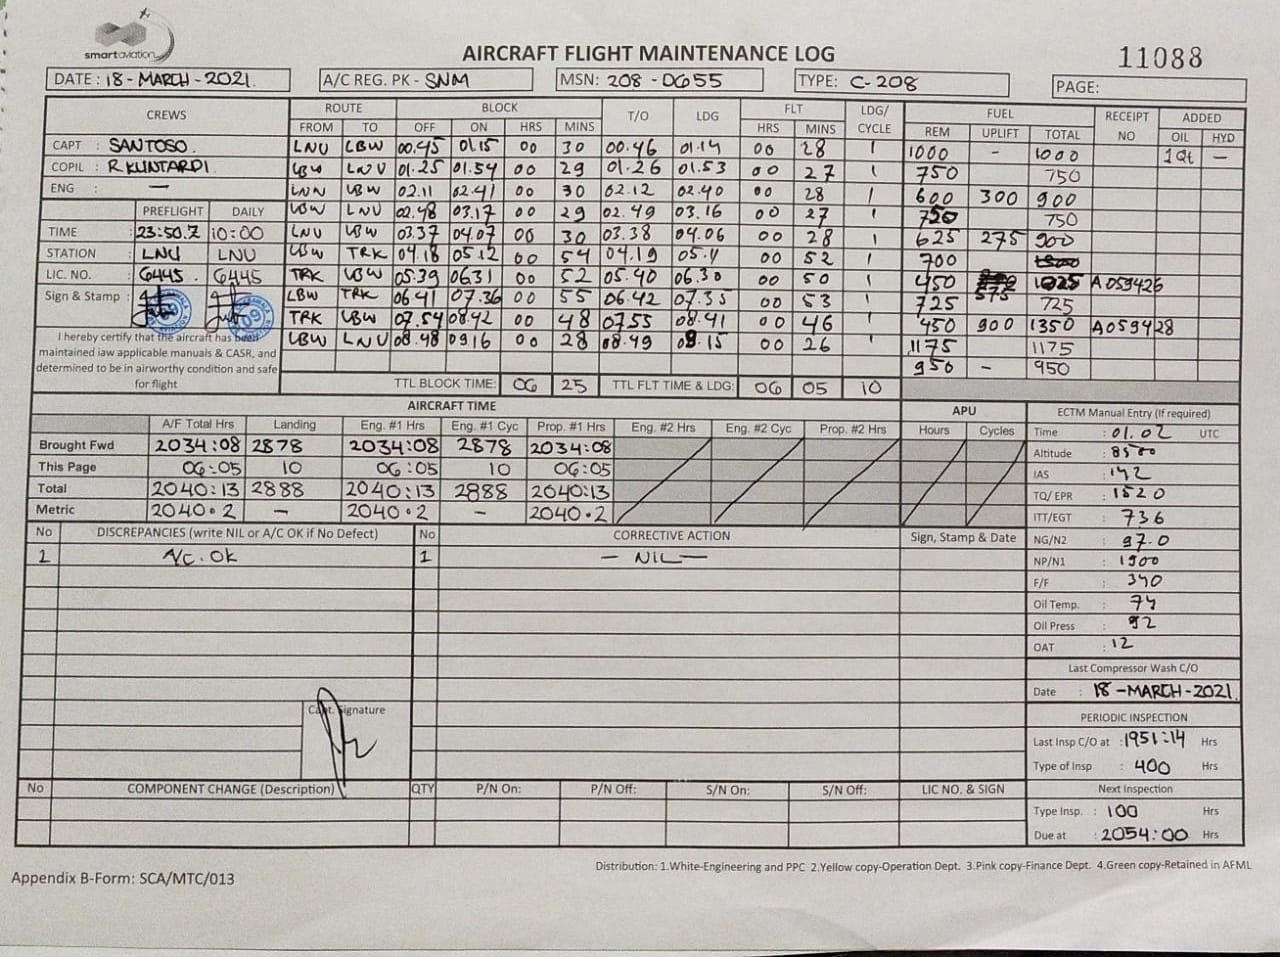 smartaviation
AIRCRAFT FLIGHT MAINTENANCE LOG
11088
DATE : 18 - MARCH - 2021. A/C REG. PK - SNM MSN: 208 - 0655 TYPE: C - 208 PAGE:
CREWS ROUTE BLOCK T/O LDG FLT LDG/ CYCLE FUEL RECEIPT NO ADDED
FROM TO OFF ON HRS MINS HRS MINS REM UPLIFT TOTAL OIL HYD
CAPT : SANTOSO. LNU LBW 00.45 01.15 00 30 00.46 01.14 00 28 1 1000 - 1000 1Qt —
COPIL : R KUNTARDI LBW LNU 01.25 01.54 00 29 01.26 01.53 00 27 1 750 750
ENG : — LNU LBW 02.11 02.41 00 30 02.12 02.40 00 28 1 600 300 900
PREFLIGHT DAILY LBW LNU 02.48 03.17 00 29 02.49 03.16 00 27 1 750 750
TIME : 23:50.Z 10:00 LNU LBW 03.37 04.07 00 30 03.38 04.06 00 28 1 625 275 900
STATION : LNU LNU LBW TRK 04.18 05.12 00 54 04.19 05.11 00 52 1 700
LIC. NO. : 6445. 6445 TRK LBW 05.39 06.31 00 52 05.40 06.30 00 50 1 450 575 1025 A 059426
Sign & Stamp : LBW TRK 06.41 07.36 00 55 06.42 07.35 00 53 1 725 725
TRK LBW 07.54 08.42 00 48 07.55 08.41 00 46 1 450 900 1350 A059428
LBW LNU 08.48 09.16 00 28 08.49 09.15 00 26 1 1175 1175
950 - 950
I hereby certify that the aircraft has been
maintained iaw applicable manuals & CASR, and
determined to be in airworthy condition and safe
for flight
TTL BLOCK TIME: 06 25 TTL FLT TIME & LDG: 06 05 10
AIRCRAFT TIME APU ECTM Manual Entry (If required)
A/F Total Hrs Landing Eng. #1 Hrs Eng. #1 Cyc Prop. #1 Hrs Eng. #2 Hrs Eng. #2 Cyc Prop. #2 Hrs Hours Cycles
Brought Fwd 2034:08 2878 2034:08 2878 2034:08
This Page 06:05 10 06:05 10 06:05
Total 2040:13 2888 2040:13 2888 2040:13
Metric 2040.2 — 2040.2 — 2040.2
Time : 01.02 UTC
Altitude : 8500
IAS : 142
TQ/ EPR : 1520
ITT/EGT : 736
NG/N2 : 97.0
NP/N1 : 1900
F/F : 340
Oil Temp. : 74
Oil Press : 92
OAT : 12
No DISCREPANCIES (write NIL or A/C OK if No Defect) No CORRECTIVE ACTION Sign, Stamp & Date
1 A/C. OK 1 — NIL —
Capt. Signature
Last Compressor Wash C/O
Date : 18 -MARCH-2021.
PERIODIC INSPECTION
Last Insp C/O at : 1951:14 Hrs
Type of Insp : 400 Hrs
Next Inspection
Type Insp. : 100 Hrs
Due at : 2054:00 Hrs
No COMPONENT CHANGE (Description) QTY P/N On: P/N Off: S/N On: S/N Off: LIC NO. & SIGN
Distribution: 1.White-Engineering and PPC 2.Yellow copy-Operation Dept. 3.Pink copy-Finance Dept. 4.Green copy-Retained in AFML
Appendix B-Form: SCA/MTC/013